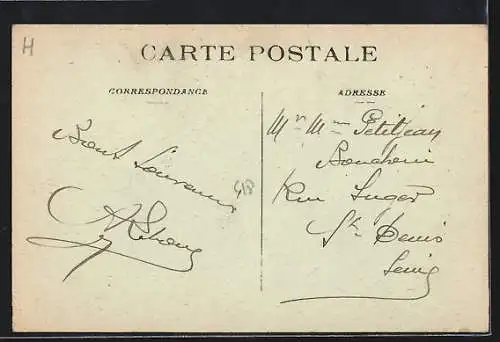 H
CARTE POSTALE
CORRESPONDANCE
ADRESSE
Bons Souvenirs
Mr Mme Petitjean
Boucherie
Rue Suger
St. Denis
Seine